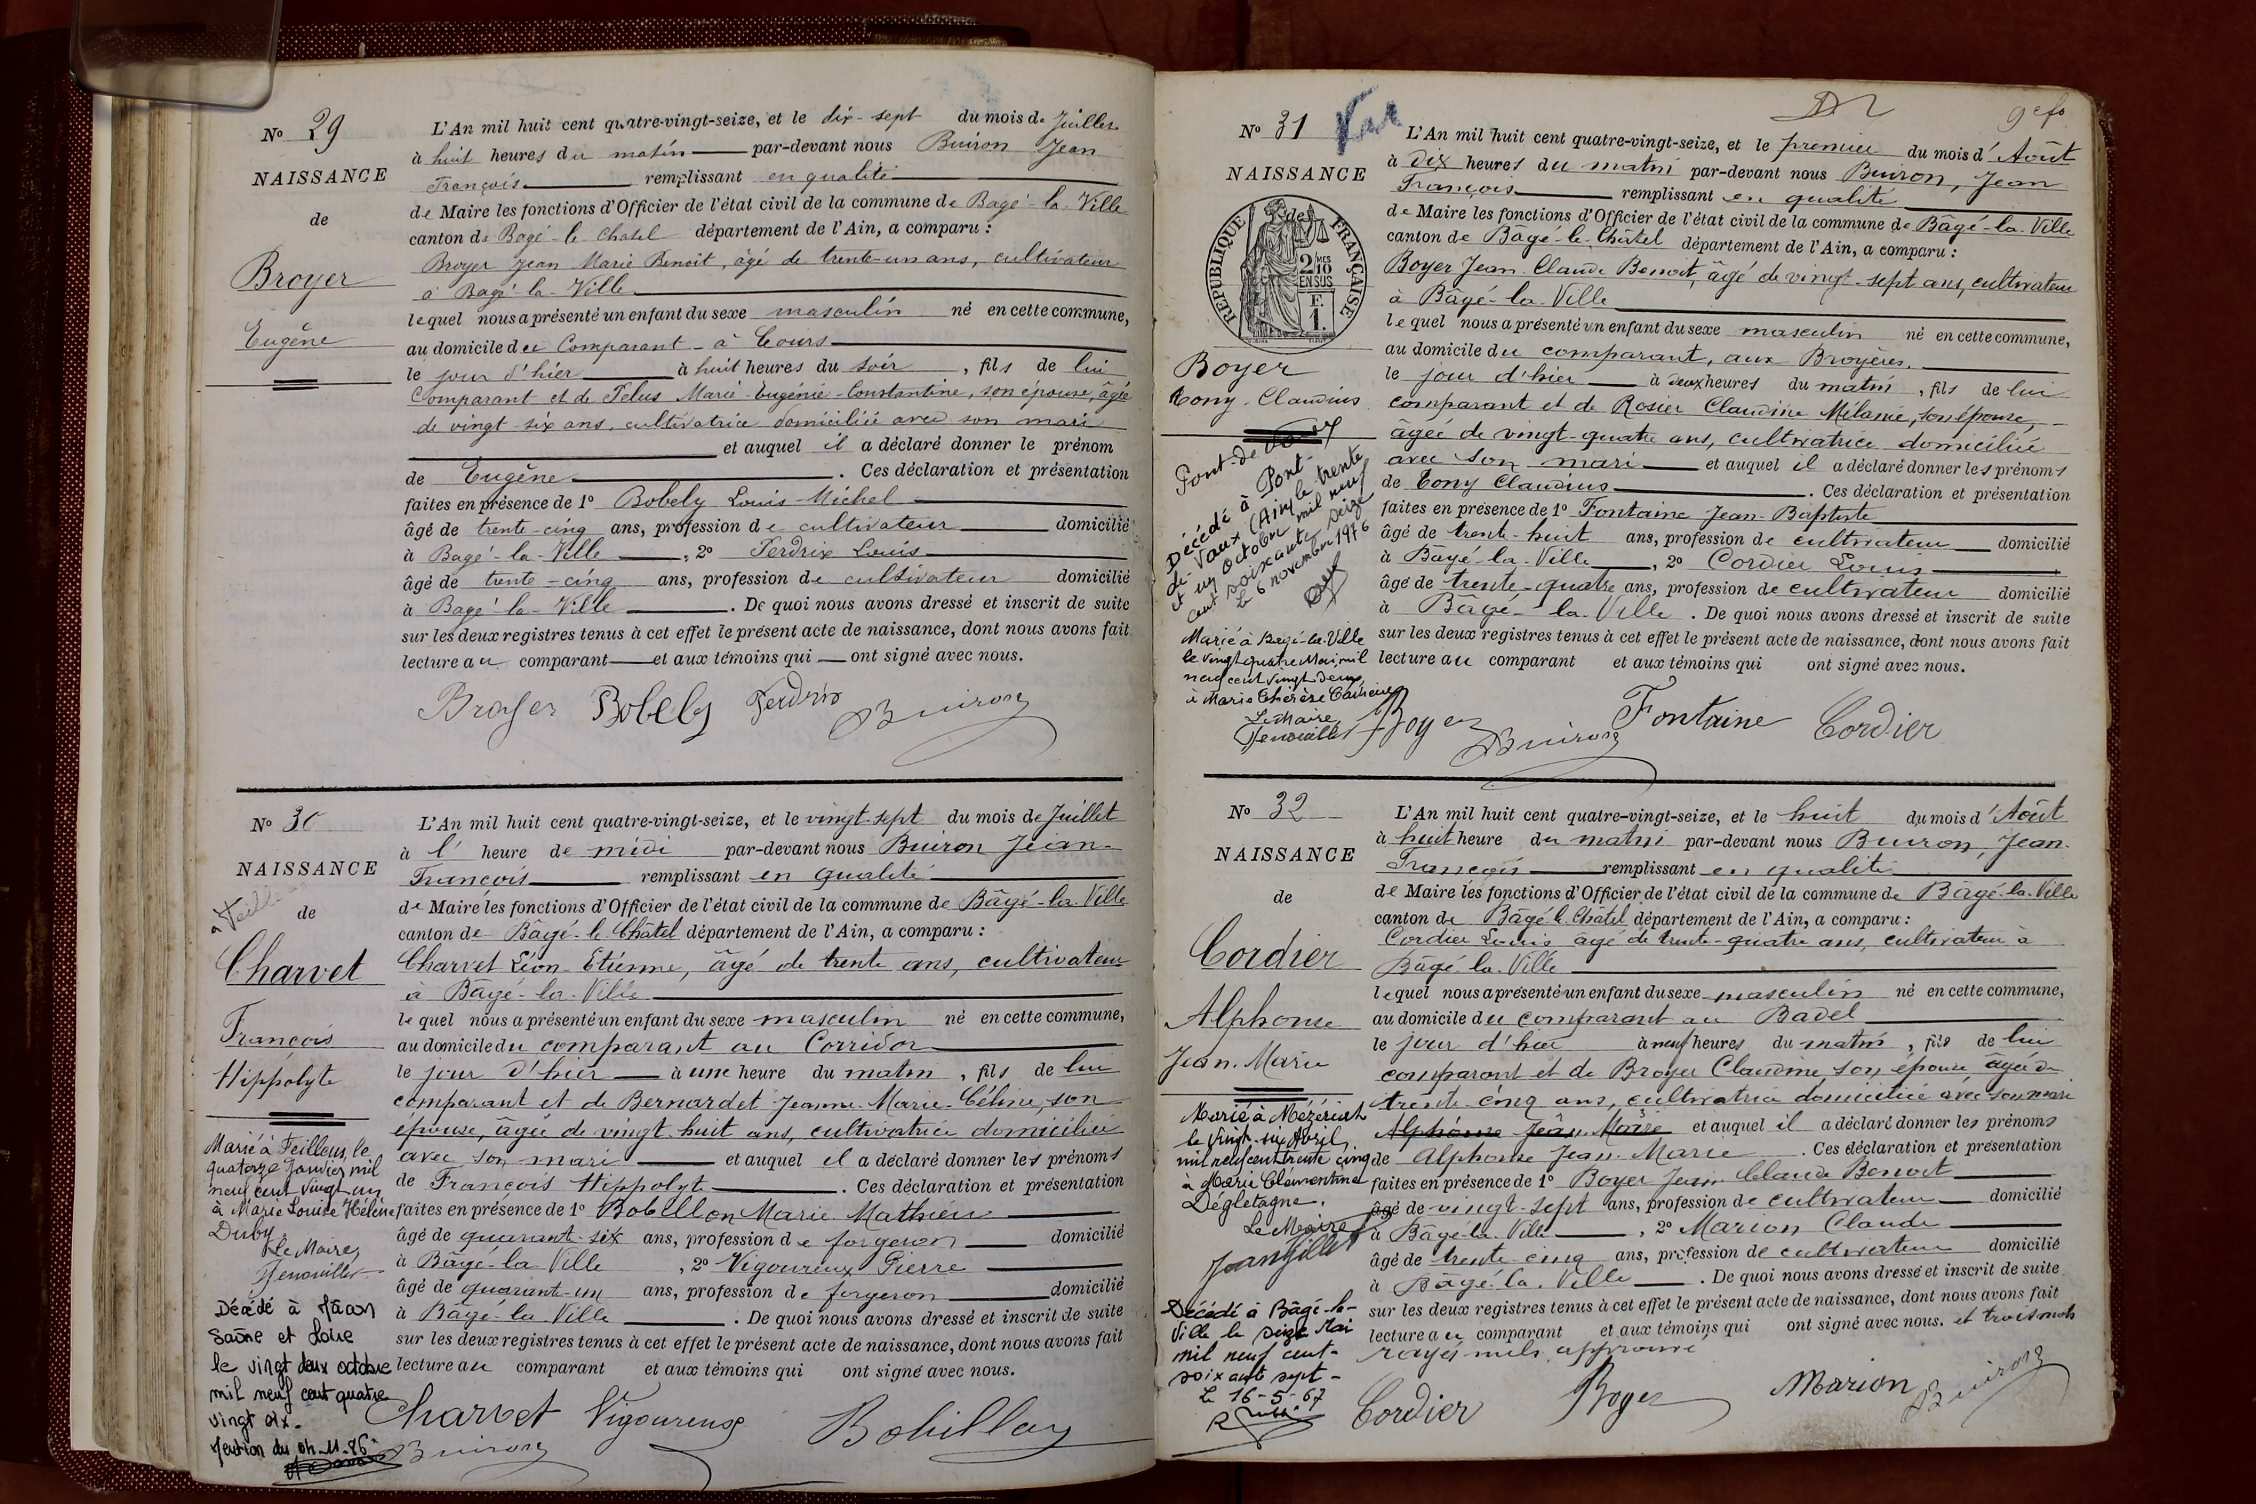 N° 29
NAISSANCE
de
Broyer
Eugène
L'An mil huit cent quatre-vingt-seize, et le dix-sept du mois de Juillet
à huit heures du matin par-devant nous Buiron Jean
François remplissant en qualité
de Maire les fonctions d'Officier de l'état civil de la commune de Bagé-la-Ville
canton de Bagé-le-Chatel département de l'Ain, a comparu :
Broyer Jean Marie Benoit, âgé de trente-un ans, cultivateur
à Bagé-la-Ville
lequel nous a présenté un enfant du sexe masculin né en cette commune,
au domicile du Comparant - à Cours
le jour d'hier à huit heures du soir, fils de lui
Comparant et de Marie-Eugénie-Constantine, son épouse, âgée
de vingt-six ans, cultivatrice domiciliée avec son mari
et auquel il a déclaré donner le prénom
de Eugène. Ces déclaration et présentation
faites en présence de 1° Bobely Louis Michel
âgé de trente-cinq ans, profession de cultivateur domicilié
à Bagé-la-Ville, 2° Ferdrix Louis
âgé de trente-cinq ans, profession de cultivateur domicilié
à Bagé-la-Ville. De quoi nous avons dressé et inscrit de suite
sur les deux registres tenus à cet effet le présent acte de naissance, dont nous avons fait
lecture au comparant et aux témoins qui ont signé avec nous.
Broyer Bobely Ferdrix Buiron
N° 30
NAISSANCE
de
Charvet
François
Hippolyte
Marié à Feillens, le
quatorze Janvier mil
neuf cent vingt un
à Marie Louise Hélène
Duby.
Le Maire,
Décédé à Mâcon
Saône et Loire
le vingt deux octobre
mil neuf cent quatre
vingt six.
Mention du 04-11-86
L'An mil huit cent quatre-vingt-seize, et le vingt-sept du mois de Juillet
à l' heure de midi par-devant nous Buiron Jean-
François remplissant en qualité
de Maire les fonctions d'Officier de l'état civil de la commune de Bâgé-la-Ville
canton de Bâgé-le-Châtel département de l'Ain, a comparu :
Charvet Léon-Etienne, âgé de trente ans, cultivateur
à Bâgé-la-Ville
lequel nous a présenté un enfant du sexe masculin né en cette commune,
au domicile du comparant au Corridor
le jour d'hier à une heure du matin, fils de lui
comparant et de Bernardet Jeanne-Marie-Céline, son
épouse, âgée de vingt-huit ans, cultivatrice domiciliée
avec son mari et auquel il a déclaré donner les prénoms
de François Hippolyte. Ces déclaration et présentation
faites en présence de 1° Bobillon Marie Mathieu
âgé de quarante-six ans, profession de forgeron domicilié
à Bâgé-la-Ville, 2° Vigoureux Pierre
âgé de quarante-un ans, profession de forgeron domicilié
à Bâgé-la-Ville. De quoi nous avons dressé et inscrit de suite
sur les deux registres tenus à cet effet le présent acte de naissance, dont nous avons fait
lecture au comparant et aux témoins qui ont signé avec nous.
Charvet Vigoureux Bobillon
Buiron
9e fo
N° 31
NAISSANCE
de
REPUBLIQUE FRANÇAISE
2 MES
10
EN SUS
F.
1.
Boyer
Tony-Claudius
Pont-de-Vaux
Décédé à Pont-
de-Vaux (Ain) le trente
et un octobre mil neuf
cent soixante seize
Le 6 novembre 1976
Marié à Bagé-la-Ville
le vingt quatre Mai mil
neuf cent vingt deux
à Marie Thérèse
Le Maire
L'An mil huit cent quatre-vingt-seize, et le premier du mois d'Août
à dix heures du matin par-devant nous Buiron, Jean
François remplissant en qualité
de Maire les fonctions d'Officier de l'état civil de la commune de Bâgé-la-Ville
canton de Bâgé-le-Châtel département de l'Ain, a comparu :
Boyer Jean-Claude Benoit, âgé de vingt-sept ans, cultivateur
à Bâgé-la-Ville
lequel nous a présenté un enfant du sexe masculin né en cette commune,
au domicile du comparant, aux Broyères,
le jour d'hier à deux heures du matin, fils de lui
comparant et de Rosier Claudine Mélanie, son épouse,
âgée de vingt-quatre ans, cultivatrice domiciliée
avec son mari et auquel il a déclaré donner les prénoms
de Tony Claudius. Ces déclaration et présentation
faites en présence de 1° Fontaine Jean-Baptiste
âgé de trente-huit ans, profession de cultivateur domicilié
à Bâgé-la-Ville, 2° Cordier Louis
âgé de trente-quatre ans, profession de cultivateur domicilié
à Bâgé-la-Ville. De quoi nous avons dressé et inscrit de suite
sur les deux registres tenus à cet effet le présent acte de naissance, dont nous avons fait
lecture au comparant et aux témoins qui ont signé avec nous.
Boyer Buiron Fontaine Cordier
N° 32
NAISSANCE
de
Cordier
Alphonse
Jean-Marie
Marié à Mézériat
le vingt-six Avril
mil neuf cent trente cinq
à Marie Clementine
Dégletagne.
Le Maire
Décédé à Bâgé-la-
Ville le seize Mai
mil neuf cent-
soixante sept-
Le 16-5-67
L'An mil huit cent quatre-vingt-seize, et le huit du mois d'Août
à huit heure du matin par-devant nous Buiron, Jean-
François remplissant en qualité
de Maire les fonctions d'Officier de l'état civil de la commune de Bâgé-la-Ville
canton de Bâgé-le-Châtel département de l'Ain, a comparu :
Cordier Louis âgé de trente-quatre ans, cultivateur à
Bâgé-la-Ville
lequel nous a présenté un enfant du sexe masculin né en cette commune,
au domicile du comparant au Badel
le jour d'hier à neuf heures du matin, fils de lui
comparant et de Broyer Claudine son épouse âgée de
trente-cinq ans, cultivatrice domiciliée avec son mari
Alphonse Jean-Marie et auquel il a déclaré donner les prénoms
de Alphonse Jean-Marie. Ces déclaration et présentation
faites en présence de 1° Boyer Jean Claude Benoit
âgé de vingt-sept ans, profession de cultivateur domicilié
à Bâgé-la-Ville, 2° Marion Claude
âgé de trente-cinq ans, profession de cultivateur domicilié
à Bâgé-la-Ville. De quoi nous avons dressé et inscrit de suite
sur les deux registres tenus à cet effet le présent acte de naissance, dont nous avons fait
lecture au comparant et aux témoins qui ont signé avec nous. et trois mots
rayés nuls approuvé
Cordier Boyer Marion Buiron